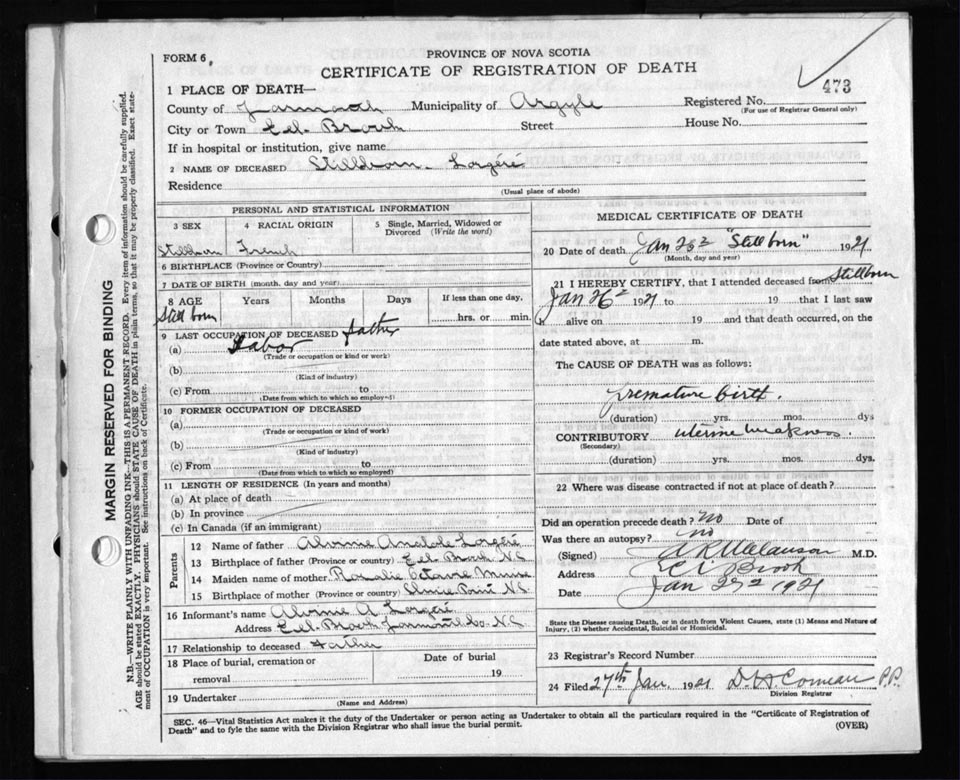 FORM 6.
PROVINCE OF NOVA SCOTIA
CERTIFICATE OF REGISTRATION OF DEATH
473
1 PLACE OF DEATH—
County of Yarmouth Municipality of Argyle Registered No.
(For use of Registrar General only)
City or Town Eel Brook Street House No.
If in hospital or institution, give name
2 NAME OF DECEASED Stillborn
Residence
(Usual place of abode)
PERSONAL AND STATISTICAL INFORMATION
3 SEX
4 RACIAL ORIGIN
5 Single, Married, Widowed or Divorced (Write the word)
Stillborn French
6 BIRTHPLACE (Province or Country)
7 DATE OF BIRTH (month, day and year)
8 AGE Years Months Days If less than one day,
Still born hrs. or min.
9 LAST OCCUPATION OF DECEASED father
(a) Labor
(Trade or occupation or kind or work)
(b)
(Kind of industry)
(c) From to
(Date from which to which so employed)
10 FORMER OCCUPATION OF DECEASED
(a)
(Trade or occupation or kind of work)
(b)
(Kind of industry)
(c) From to
(Date from which to which so employed)
11 LENGTH OF RESIDENCE (In years and months)
(a) At place of death
(b) In province
(c) In Canada (if an immigrant)
Parents
12 Name of father Anatole
13 Birthplace of father (Province or country) Eel Brook N.S.
14 Maiden name of mother Rosalie Octavie
15 Birthplace of mother (Province or country) N.S.
16 Informant's name A
Address Eel Brook Yarmouth Co. N.S.
17 Relationship to deceased Father
18 Place of burial, cremation or removal
Date of burial
19
19 Undertaker
(Name and Address)
MEDICAL CERTIFICATE OF DEATH
20 Date of death Jan "Still born" 1921
(Month, day and year)
21 I HEREBY CERTIFY, that I attended deceased from Stillborn
Jan 26 1921 to 19 that I last saw
h alive on 19 and that death occurred, on the
date stated above, at m.
The CAUSE OF DEATH was as follows:
premature birth.
(duration) yrs. mos. dys
CONTRIBUTORY uterine weakness
(Secondary)
(duration) yrs. mos. dys.
22 Where was disease contracted if not at place of death?
Did an operation precede death? no Date of
Was there an autopsy? no
(Signed) M.D.
Address Brook
Date Jan 1921
State the Disease causing Death, or in death from Violent Causes, state (1) Means and Nature of
Injury, (2) whether Accidental, Suicidal or Homicidal.
23 Registrar's Record Number
24 Filed 27th Jan. 1921 Comeau P.P.
Division Registrar
SEC. 46—Vital Statistics Act makes it the duty of the Undertaker or person acting as Undertaker to obtain all the particulars required in the "Certificate of Registration of
Death" and to fyle the same with the Division Registrar who shall issue the burial permit.
(OVER)
MARGIN RESERVED FOR BINDING
N.B.—WRITE PLAINLY WITH UNFADING INK—THIS IS A PERMANENT RECORD. Every item of information should be carefully supplied.
AGE should be stated EXACTLY. PHYSICIANS should STATE CAUSE OF DEATH in plain terms, so that it may be properly classified. Exact state-
ment of OCCUPATION is very important. See instructions on back of Certificate.